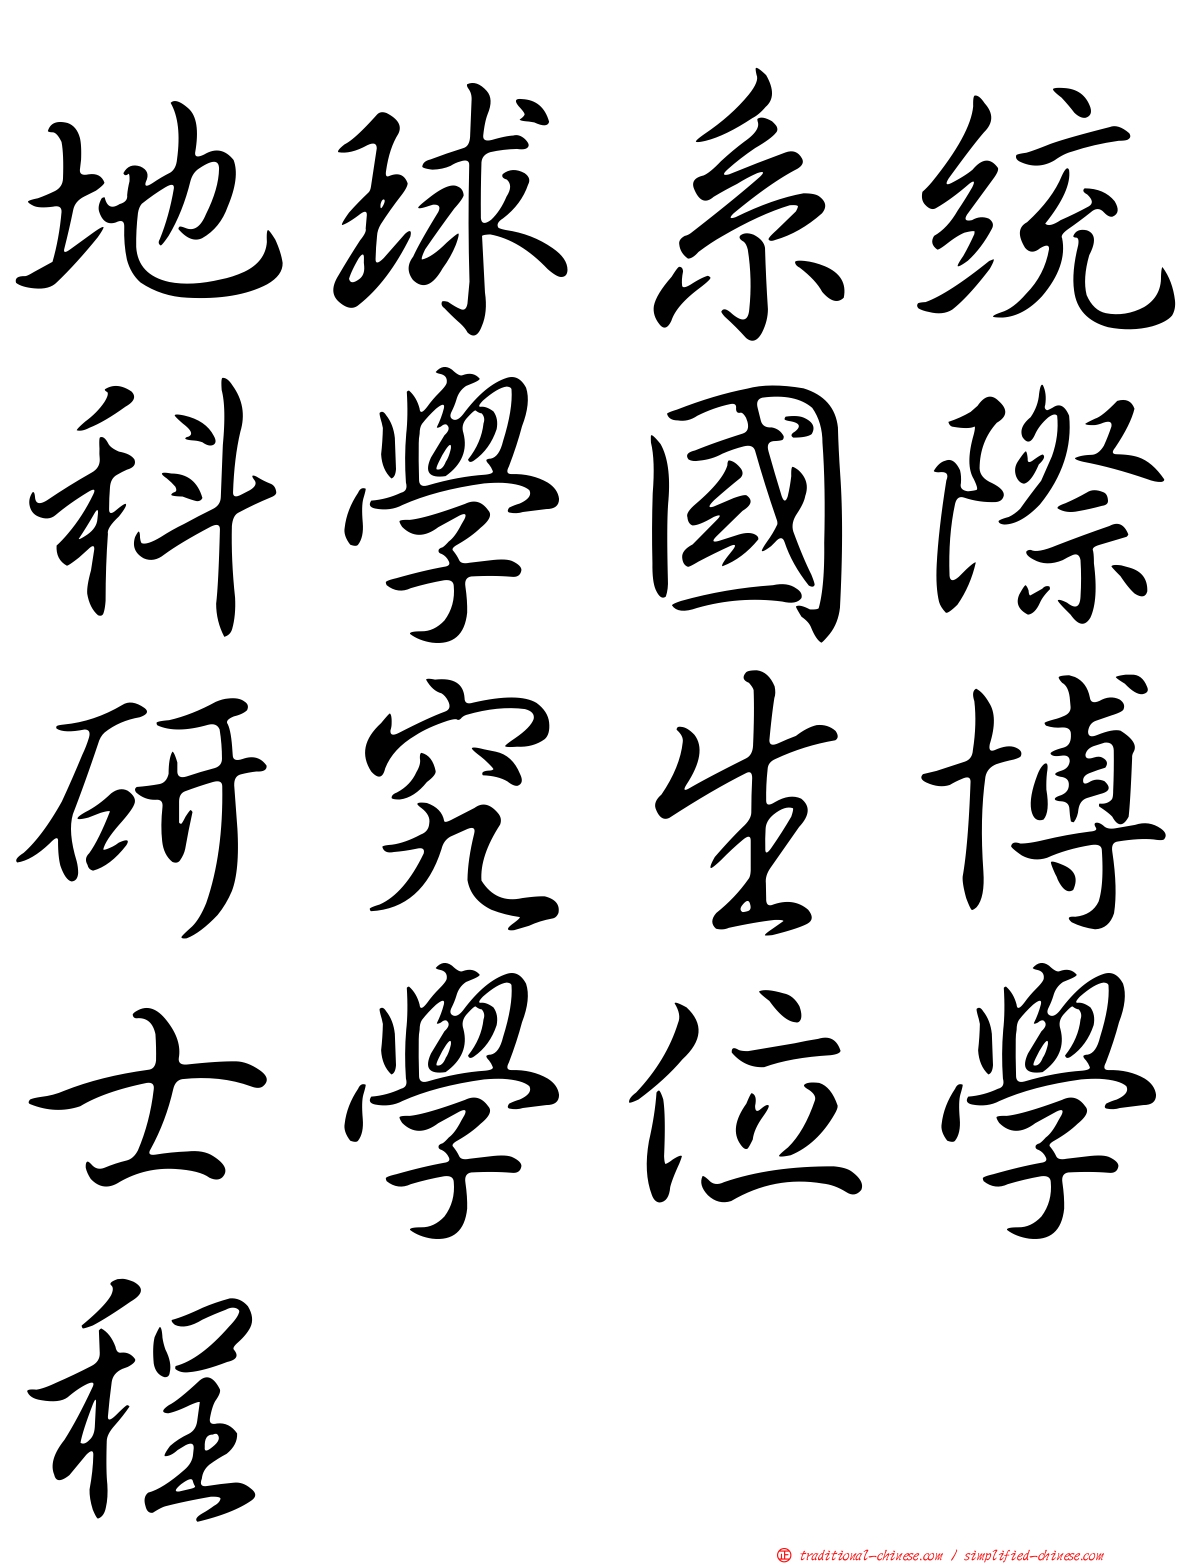 地球系統
科學國際
研究生博
士學位學
程
正 traditional-chinese.com / simplified-chinese.com